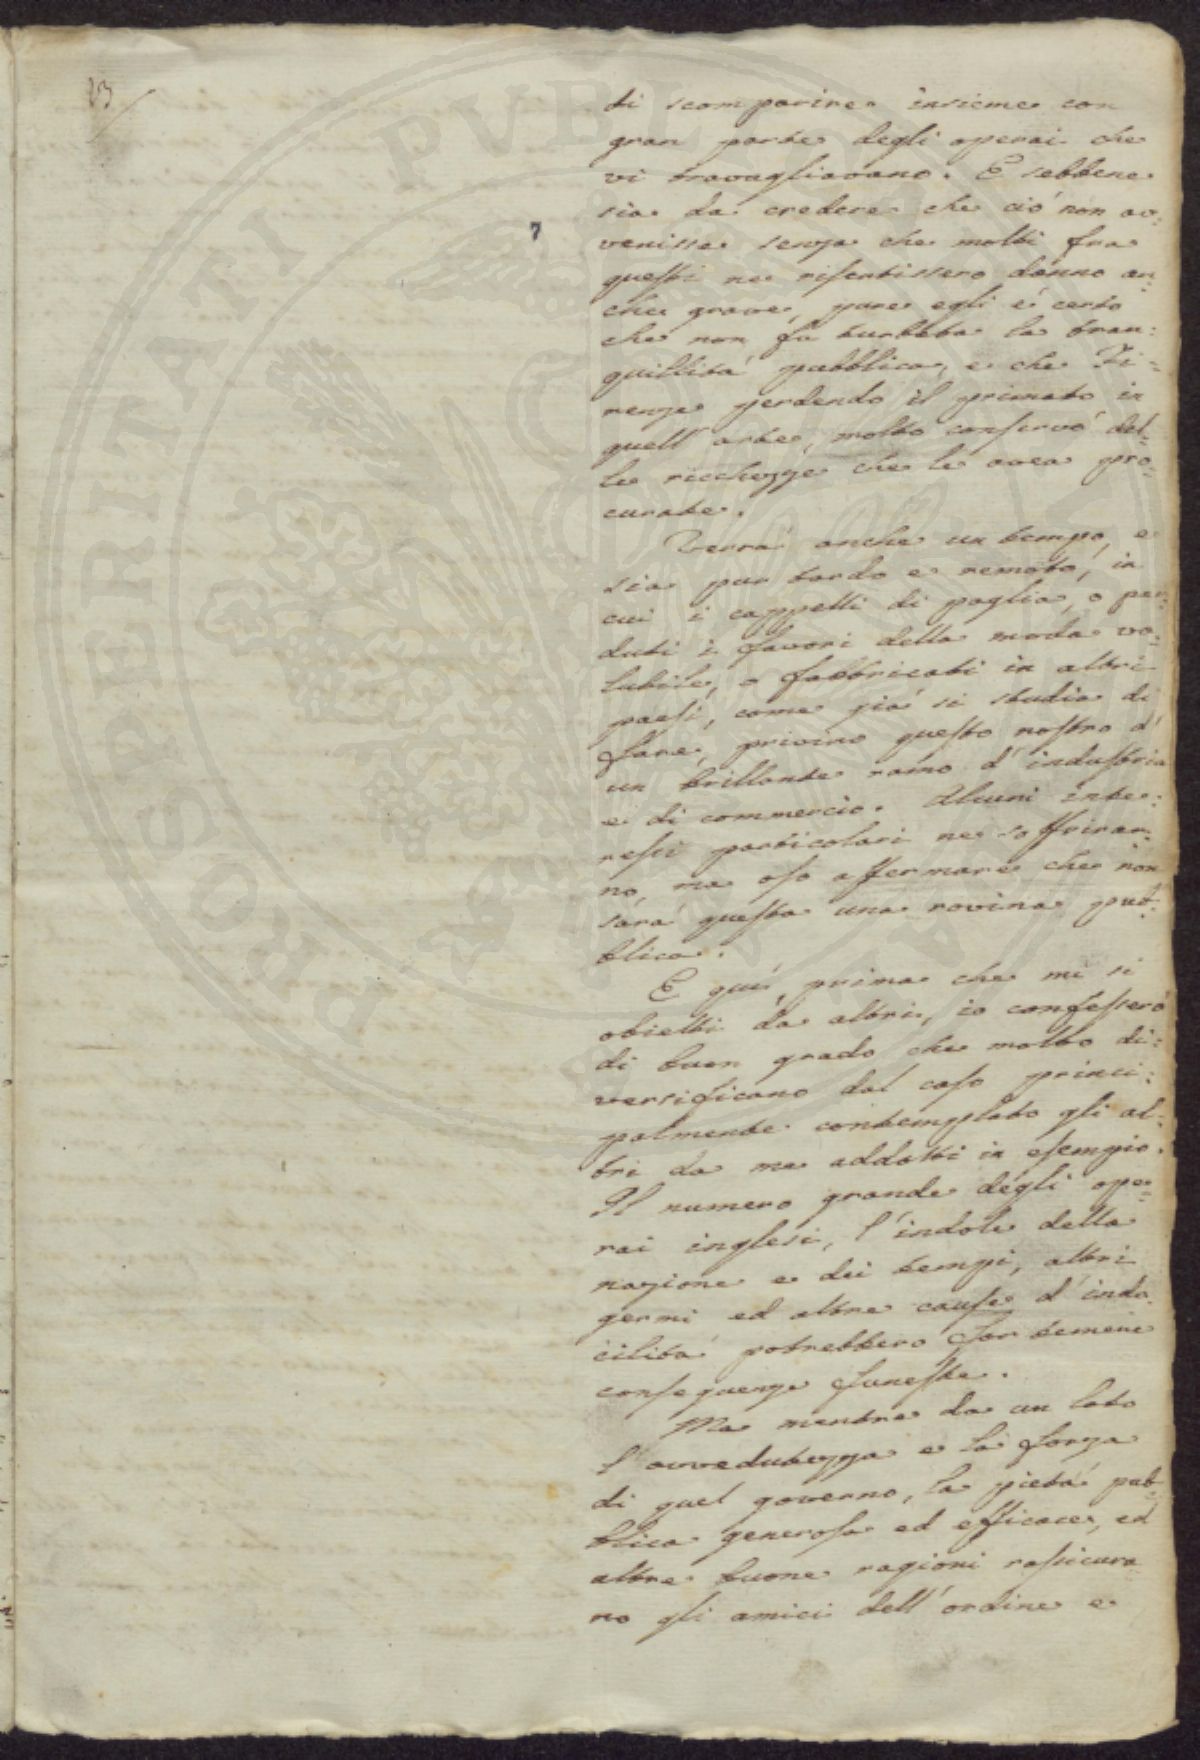 23
7
di scomparire insieme con
gran parte degli operai che
vi travagliavano. E sebbene
sia da credere che ciò non av:
venisse senza che molti fra
questi ne risentissero danno an:
che grave, pure egli è certo
che non fu turbata la tran:
quillità pubblica, e che Fi:
renze perdendo il primato in
quell'arte, molto conservò del:
le ricchezze che le avea pro:
curate.
Verrà anche un tempo, e
sia pur tardo e remoto, in
cui i cappelli di paglia, o per:
duti i favori della moda vo:
lubile, o fabbricati in altri
paesi, come già si studia di
fare, privino questo nostro d'
un brillante ramo d'industria
e di commercio. Alcuni inte:
ressi particolari ne soffriran:
no, ma oso affermare che non
sarà questa una rovina pub:
blica.
E quì, prima che mi si
obietti da altri, io confesserò
di buon grado che molto di:
versificano dal caso princi:
palmente contemplato gli al:
tri da me addotti in esempio.
Il numero grande degli ope:
rai inglesi, l'indole della
nazione e dei tempi, altri
germi ed altre cause d'indo:
cilità potrebbero far temere
conseguenze funeste.
Ma mentre da un lato
l'avvedutezza e la forza
di quel governo, la pietà pub:
blica generosa ed efficace, ed
altre buone ragioni rassicura
no gli amici dell'ordine e
PROSPERITATI PVBLICAE